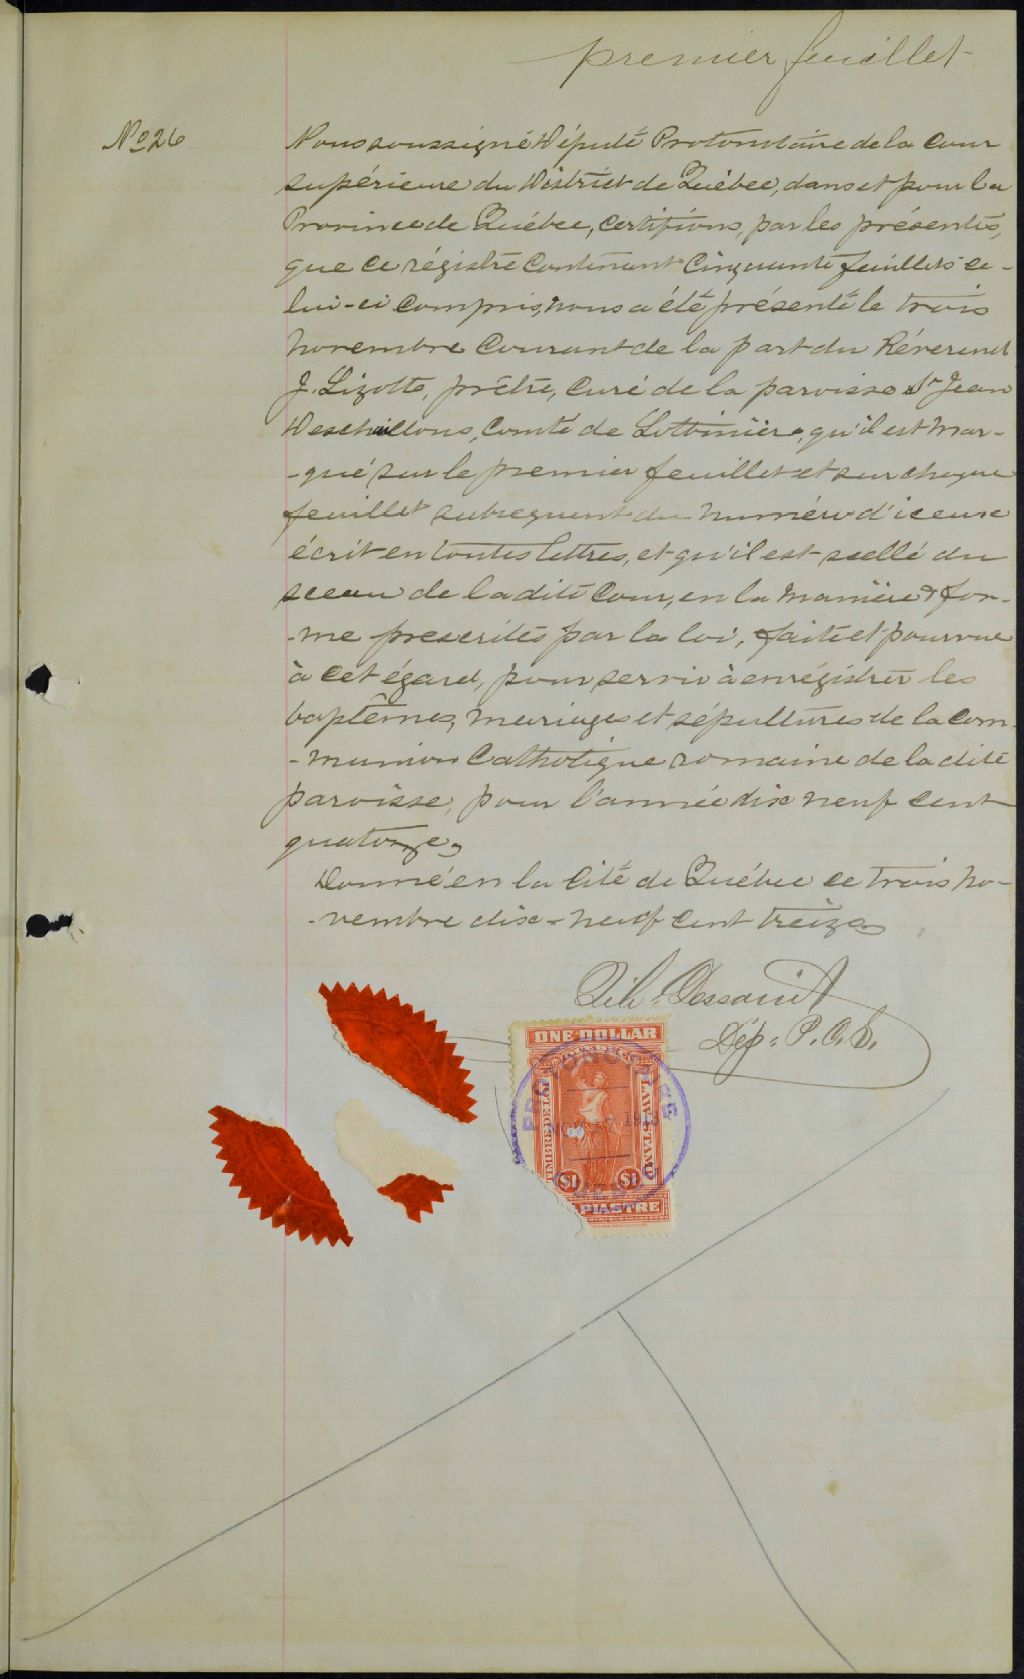 premier feuillet
No 26
Nous soussigné Député Protonotaire de la Cour
supérieure du District de Québec, dans et pour la
Province de Québec, certifions, par les présentes,
que ce régistre contenant cinquante feuillets ce-
lui-ci compris, nous a été présenté le trois
novembre courant de la part du Révérend
J. Lizotte, prêtre, curé de la paroisse St Jean
Deschaillons, Comté de Lotbinière, qu'il est mar-
-qué sur le premier feuillet et sur chaque
feuillet subsequent du numéro d'iceux
écrit en toutes lettres, et qu'il est scellé du
sceau de la dite Cour, en la manière & for-
-me prescrites par la loi, faite et pourvue
à cet égard, pour servir à enrégistrer les
baptêmes, mariages et sépultures de la com-
-munion Catholique romaine de la dite
paroisse, pour l'année dix neuf cent
quatorze,
Donné en la Cité de Québec ce trois no-
-vembre dix-neuf cent treize
Dép. P.C.S.
ONE DOLLAR
PROTONOTAIRE
TIMBRE DE LOI
LAW STAMP
$1 $1
PIASTRE